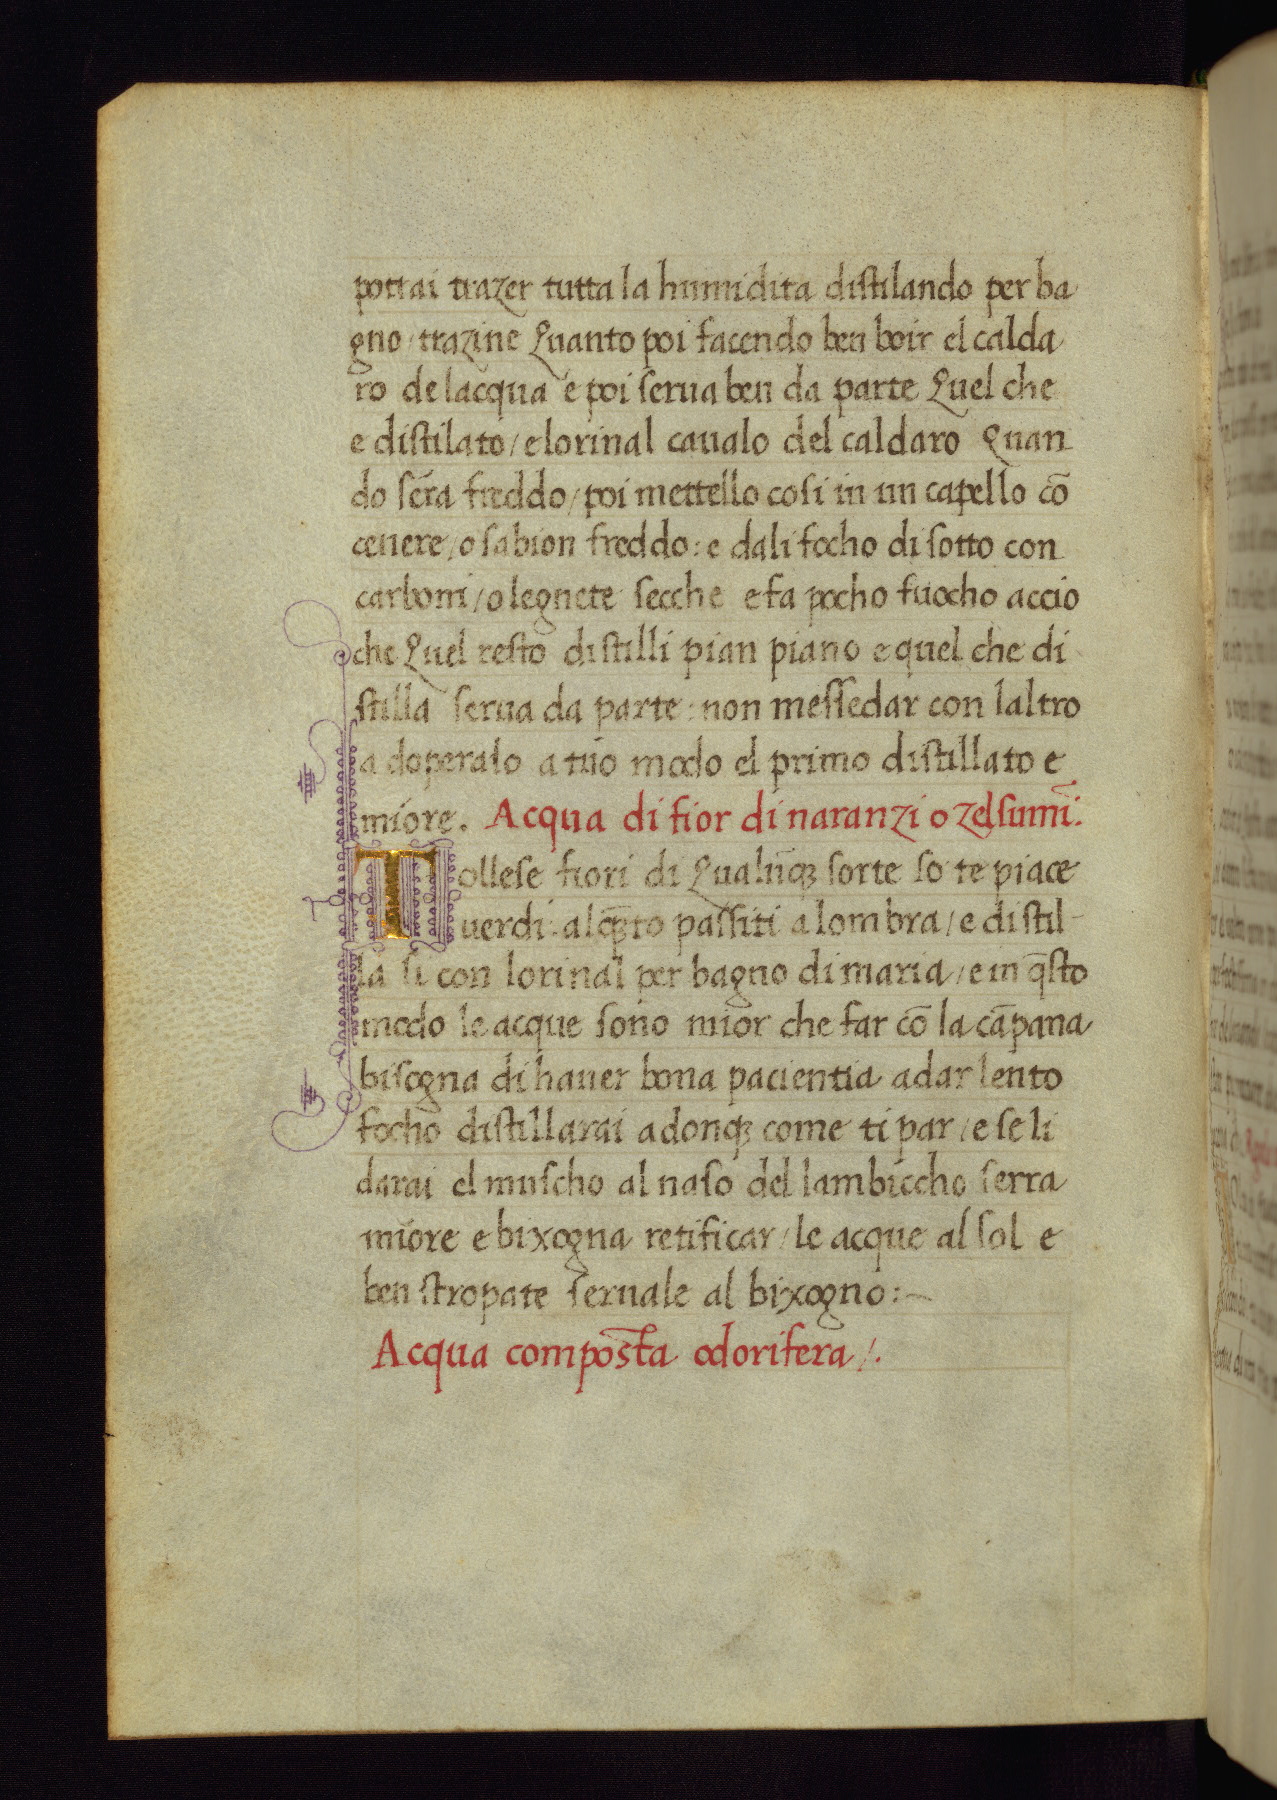 pottai trazer tutta la humidita distilando per ba
gno / trazine Quanto poi facendo ben boir el calda
ro de lacqua e poi serua ben da parte Quel che
e distilato / e lorinal caualo del caldaro Quan
do sera freddo / poi mettello cosi in un capello cō
cenere / o sabion freddo : e dali focho di sotto con
carboni / o legnete secche e fa pocho fuocho accio
che Quel resto distilli pian piano e quel che di
stilla serua da parte : non messedar con laltro
a doperalo a tuo modo el primo distillato e
miore. Acqua di fior di naranzi o zelsumī:
Tollese fiori di Qualūqꝫ sorte so te piace
uerdi : alqꝫto passiti a lombra / e distil-
la si con lorinal per bagno di maria / e in q̄sto
modo le acque sono mior che far cō la cāpana
bisogna di hauer bona pacientia a dar lento
focho distillarai adonqꝫ come ti par / e se li
darai el muscho al naso del lambiccho serra
miore e bixogna retificar / le acque al sol e
ben stropate seruale al bixogno :~
Acqua composta odorifera /.